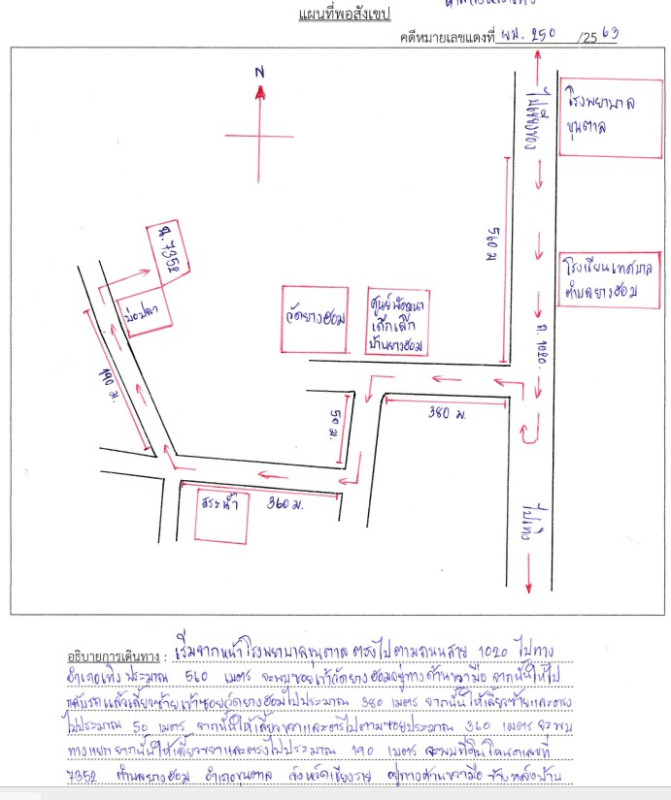 แผนที่พอสังเขป
คดีหมายเลขแดงที่ ผบ. 250 /25 63
N
ไปเชียงของ
โรงพยาบาล
ขุนตาล
560 ม
โรงเรียนเทศบาล
ตำบลยางฮอม
ถ. 1020
ฉ. 7352
บ่อปลา
วัดยางฮอม
ศูนย์พัฒนา
เด็กเล็ก
บ้านยางฮอม
190 ม.
50 ม.
380 ม.
สระน้ำ
360 ม.
ไปเทิง
อธิบายการเดินทาง : เริ่มจากหน้าโรงพยาบาลขุนตาล ตรงไปตามถนนสาย 1020 ไปทาง
อำเภอเทิง ประมาณ 560 เมตร จะพบซอยเข้าวัดยางฮอมอยู่ทางด้านขวามือ จากนั้นให้ไป
กลับรถแล้วเลี้ยวซ้ายเข้าซอยวัดยางฮอมไปประมาณ 380 เมตร จากนั้นให้เลี้ยวซ้ายและตรง
ไปประมาณ 50 เมตร จากนั้นให้เลี้ยวขวาและตรงไปตามซอยประมาณ 360 เมตร จะพบ
ทางแยก จากนั้นให้เลี้ยวขวาและตรงไปประมาณ 190 เมตร จะพบที่ดินโฉนดเลขที่
7352 ตำบลยางฮอม อำเภอขุนตาล จังหวัดเชียงราย อยู่ทางด้านขวามือ ข้างหลังบ้าน